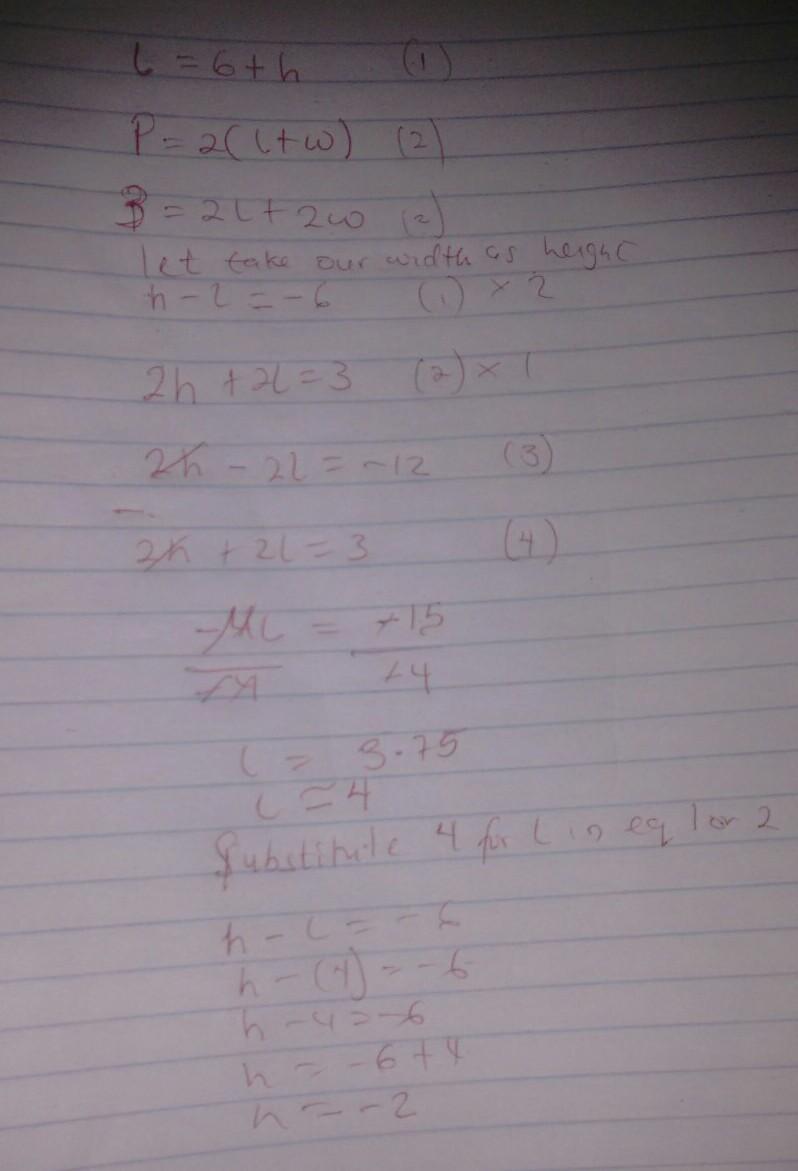 l = 6 + h (1)
P = 2(l+w) (2)
3 = 2l + 2w (2)
let take our width as height
h - l = -6 (1) × 2
2h + 2l = 3 (2) × 1
2h - 2l = -12 (3)
-
2h + 2l = 3 (4)
-4l = +15
-4 +4
l = 3.75
l = 4
Substitute 4 for l in eq 1 or 2
h - l = -6
h - (4) = -6
h - 4 = -6
h = -6 + 4
h = -2